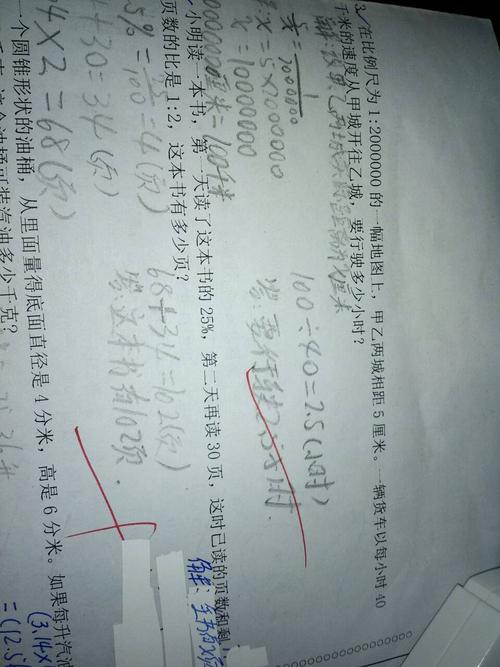 3、在比例尺为1:2000000的一幅地图上，甲乙两城相距5厘米。一辆货车以每小时40
千米的速度从甲城开往乙城，要行驶多少小时？
1/2000000
x=5×2000000
x=10000000
10000000厘米=100千米
100÷40=2.5(小时)
答：要行驶2.5小时.
小明读一本书，第一天读了这本书的25%，第二天再读30页，这时已读的页数和剩
页数的比是1:2，这本书有多少页？
=4(页)
4+30=34(页)
34×2=68(页)
68+34=102(页)
答：这本书有102页.
解：
一个圆锥形状的油桶，从里面量得底面直径是4分米，高是6分米。如果每升汽油
千克，这个油桶可装汽油多少千克？
(3.14×
=(12.5